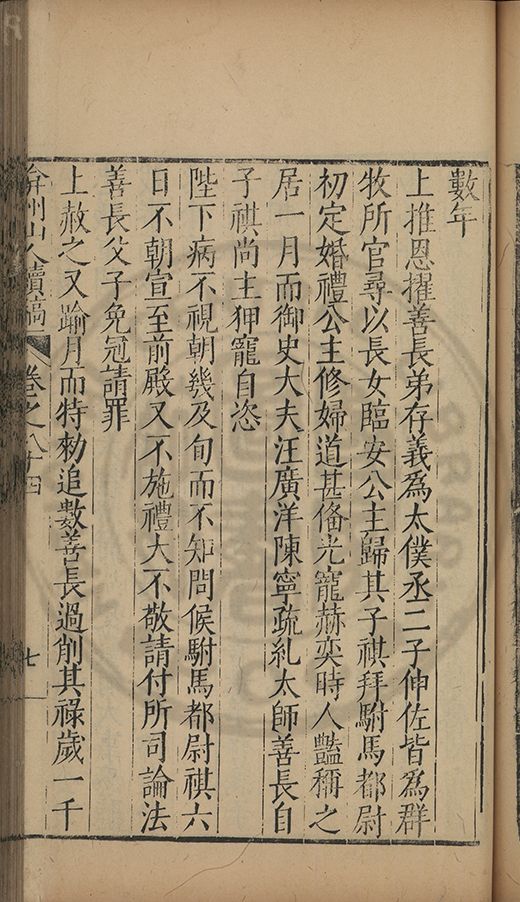 數年
上推恩擢善長弟存義爲太僕丞二子伸佐皆爲群
牧所官尋以長女臨安公主歸其子祺拜駙馬都尉
初定婚禮公主修婦道甚偹光寵赫奕時人豔稱之
居一月而御史大夫汪廣洋陳寧疏糺太師善長自
子祺尚主狎寵自恣
陛下病不視朝幾及旬而不知問候駙馬都尉祺六
日不朝宣至前殿又不施禮大不敬請付所司論法
善長父子免冠請罪
上赦之又踰月而特勑追數善長過削其祿歲一千
弇州山人續稿 卷之八十四 七